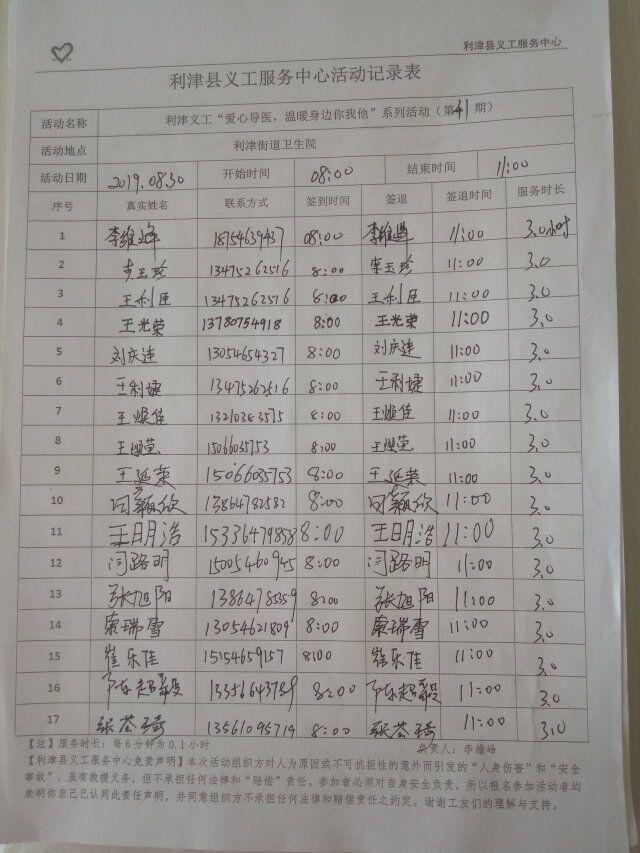 利津县义工服务中心
利津县义工服务中心活动记录表
活动名称 利津义工“爱心导医，温暖身边你我他”系列活动（第41期）
活动地点 利津街道卫生院
活动日期 2019.08.30 开始时间 08:00 结束时间 11:00
序号 真实姓名 联系方式 签到时间 签退 签退时间 服务时长
1 李维峰 18754639437 08:00 李维峰 11:00 3.0小时
2 李玉珍 13475262516 8:00 李玉珍 11:00 3.0
3 王利臣 13475262516 8:00 王利臣 11:00 3.0
4 王光荣 13780754918 8:00 王光荣 11:00 3.0
5 刘庆莲 13054654327 8:00 刘庆莲 11:00 3.0
6 王利婕 13475262516 8:00 王利婕 11:00 3.0
7 王焕佳 13210343575 8:00 王焕佳 11:00 3.0
8 15066035753 8:00 11:00 3.0
9 王延荣 15066035753 8:00 王延荣 11:00 3.0
10 13864782582 8:00 11:00 3.0
11 王日明浩 15336479858 8:00 王日明浩 11:00 3.0
12 闫路明 15005460945 8:00 闫路明 11:00 3.0
13 张旭阳 13864785559 8:00 张旭阳 11:00 3.0
14 索瑞雪 13054621809 8:00 索瑞雪 11:00 3.0
15 崔乐佳 15154659157 8:00 崔乐佳 11:00 3.0
16 13356643789 8:00 11:00 3.0
17 张荟琦 13561095719 8:00 张荟琦 11:00 3.0
【注】服务时长：每6分钟为0.1小时 负责人：李维峰
【利津县义工服务中心免责声明】本次活动组织方对人为原因或不可抗拒性的意外而引发的“人身伤害”和“安全
事故”，虽有救援义务，但不承担任何法律和“赔偿”责任。参加者必须对自身安全负责，所以报名参加活动者均
表明你自己已认同此责任声明，并同意组织方不承担任何法律和赔偿责任之约定。谢谢工友们的理解与支持。